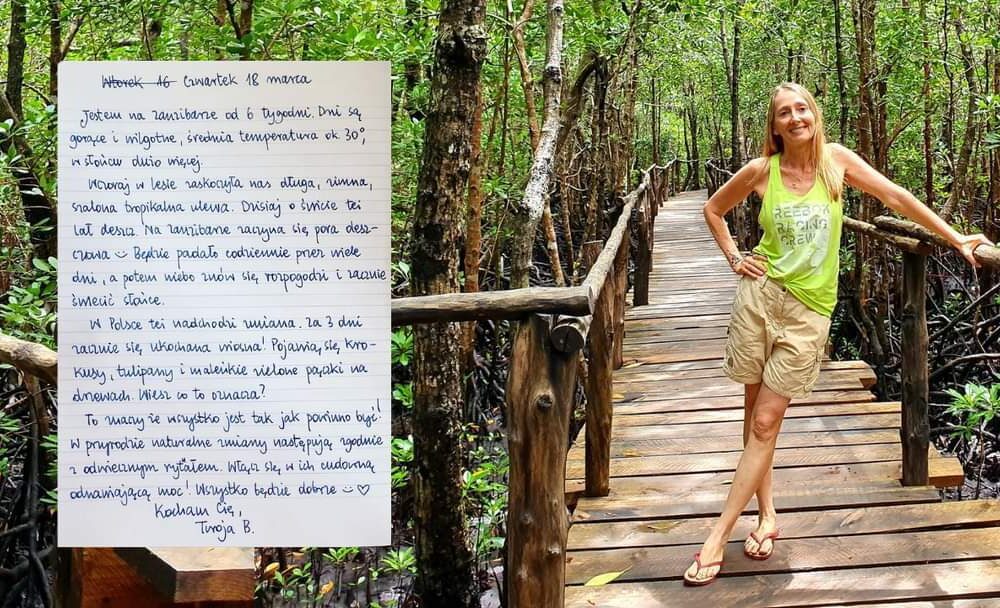 Wtorek 16 Czwartek 18 marca
Jestem na Zanzibarze od 6 tygodni. Dni są
gorące i wilgotne, średnia temperatura ok. 30°,
w słońcu dużo więcej.
Wczoraj w lesie zaskoczyła nas długa, zimna,
szalona tropikalna ulewa. Dzisiaj o świcie też
lał deszcz. Na Zanzibarze zaczyna się pora desz-
czowa :) Będzie padało codziennie przez wiele
dni, a potem niebo znów się rozpogodzi i zacznie
świecić słońce.
W Polsce też nadchodzi zmiana. Za 3 dni
zacznie się ukochana wiosna! Pojawią się kro-
kusy, tulipany i maleńkie zielone pączki na
drzewach. Wiesz co to oznacza?
To znaczy że wszystko jest tak jak powinno być!
W przyrodzie naturalne zmiany następują zgodnie
z odwiecznym rytuałem. Włącz się w ich cudowną
odnawiającą moc! Wszystko będzie dobrze :) ♡
Kocham Cię,
Twoja B.
REEBOK
RACING
CREW